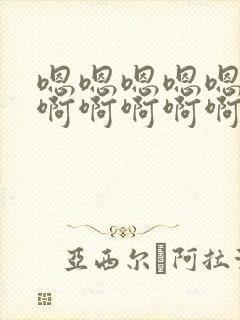 嗯嗯嗯嗯嗯
啊啊啊啊啊
亞西尔 阿拉